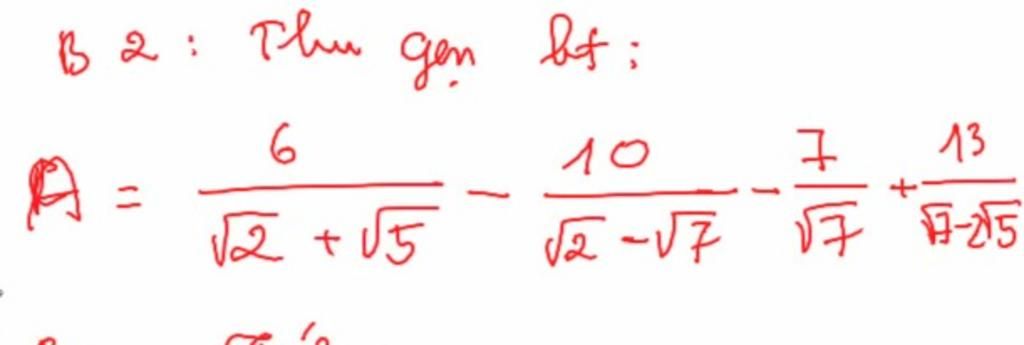 B 2 : Thu gọn bt :
A = 6/(√2 + √5) - 10/(√2 - √7) - 7/√7 + 13/(√7 - 2√5)